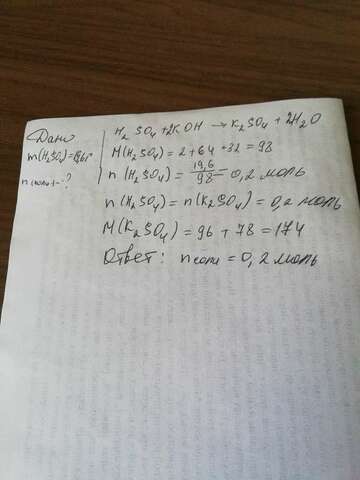 Дано
m(H₂SO₄)=19,6г
n(соли)-?
H₂SO₄+2KOH → K₂SO₄ + 2H₂O
M(H₂SO₄) = 2+64+32=98
n(H₂SO₄)= 19,6/98 = 0,2 моль
n(H₂SO₄)= n(K₂SO₄)=0,2 моль
M(K₂SO₄) = 96 + 78 = 174
Ответ: n соли = 0,2 моль